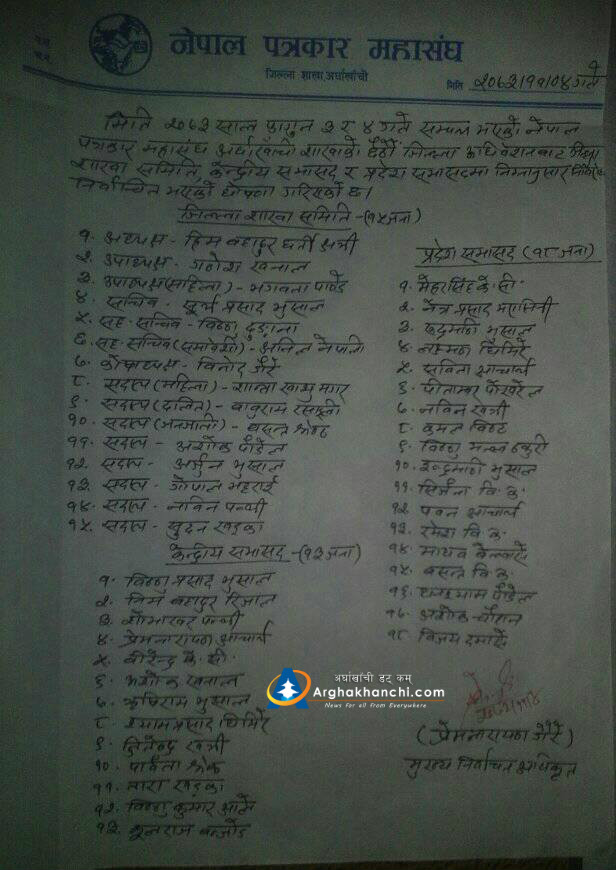 नेपाल पत्रकार महासंघ
जिल्ला शाखा, अर्घाखाँची
मिति २०७३।११।०४ गते
मिति २०७३ साल फागुन ३ र ४ गते सम्पन्न भएको नेपाल
पत्रकार महासंघ अर्घाखाँची शाखाको जिल्ला अधिवेशनबाट जिल्ला
शाखा समिति, केन्द्रीय सभासद र प्रदेश सभासदमा निम्नानुसार
निर्वाचित भएको घोषणा गरिएको छ।
जिल्ला शाखा समिति-(१५ जना)
१. अध्यक्ष - हिम बहादुर घर्ती क्षत्री
२. उपाध्यक्ष - गणेश खनाल
३. उपाध्यक्ष (महिला) - भगवती पाण्डे
४. सचिव - सूर्य प्रसाद भुसाल
५. सह-सचिव - विष्णु ढुङ्गाना
६. सह-सचिव (समावेशी) - अनिल नेपाली
७. कोषाध्यक्ष - विनोद जैरे
८. सदस्य (महिला) - शान्ता मगर
९. सदस्य (दलित) - बाबुराम रसाइली
१०. सदस्य (जनजाती) - वसन्त श्रेष्ठ
११. सदस्य - अशोक पौडेल
१२. सदस्य - अर्जुन भुसाल
१३. सदस्य - गोपाल भट्टराई
१४. सदस्य - नविन पन्थी
१५. सदस्य - सुदन खड्का
केन्द्रीय सभासद -(१३ जना)
१. विष्णु प्रसाद भुसाल
२. भिम बहादुर रिजाल
३. शोभाखर पन्थी
४. प्रेमनारायण आचार्य
५. वीरेन्द्र के.सी.
६. अशोक खनाल
७. ऋषिराम भुसाल
८. श्याम प्रसाद घिमिरे
९. जितेन्द्र खत्री
१०. पार्वता श्रेष्ठ
११. तारा खड्का
१२. विष्णु कुमार
१३. कुलराज
प्रदेश सभासद (१८ जना)
१. मेहरसिंह के.सी.
२. नेत्र प्रसाद
३. भुसाल
४. घिमिरे
५. सविता आचार्य
६. पिताम्बर पोखरेल
७. नविन खत्री
८. कमल विष्ट
९. विष्णु ठकुरी
१०. इन्द्रमणी भुसाल
११. सिर्जना वि.क.
१२. पवन आचार्य
१३. रमेश वि.क.
१४. माधव बेल्वासे
१५. वसन्त वि.क.
१६. घनश्याम पौडेल
१७. अशोक चौहान
१८. विजय दमासे
अर्घाखाँची डट् कम्
Arghakhanchi.com
News for all from Everywhere
(प्रेमनारायण जैरे)
मुख्य निर्वाचन अधिकृत